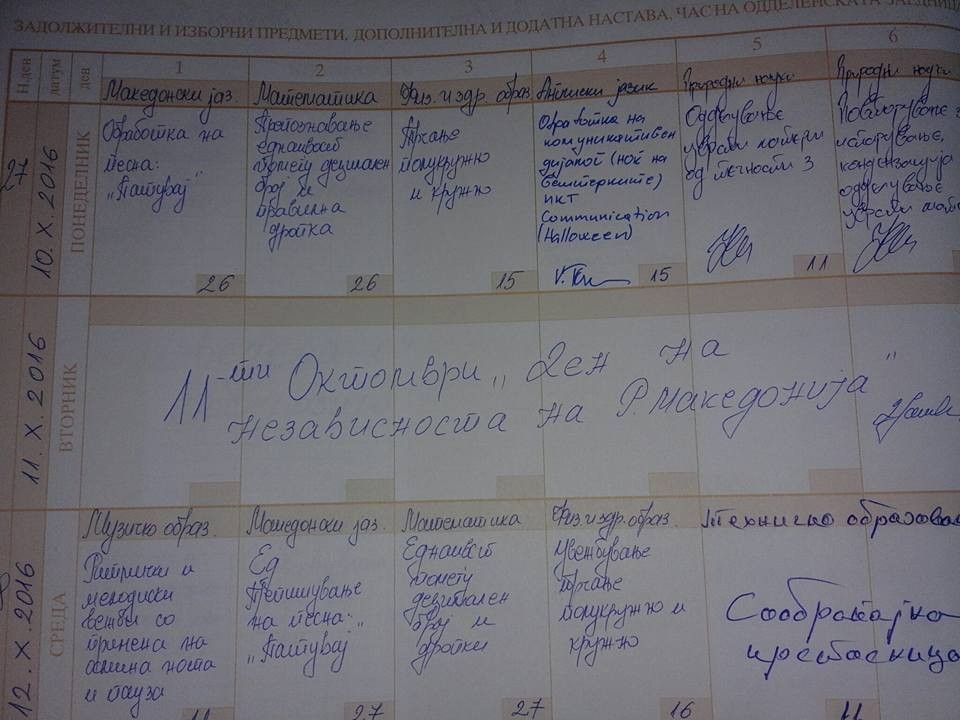 ЗАДОЛЖИТЕЛНИ И ИЗБОРНИ ПРЕДМЕТИ, ДОПОЛНИТЕЛНА И ДОДАТНА НАСТАВА, ЧАС НА ОДДЕЛЕНСКАТА ЗАЕДНИЦ
Н.дев датум ден 1 2 3 4 5 6
27
10. X. 2016
ПОНЕДЕЛНИК
Македонски јаз.
Обработка на
песна:
„Патувај"
26
Математика
Препознавање
еднаквост
помеѓу децимален
број и
правилна
дропка
26
Физ. и здр. образ.
Трчање
полукружно
и кружно
15
Англиски јазик
Обработка на
комуникативен
дијалог (ноќ на
вештерките)
ИКТ
Communication
(Halloween)
15
Природни науки
Одделување
цврсти
од течности 3
11
Природни науки
Повторување
испарување,
кондензација
одделување
цврсти
11. X. 2016
ВТОРНИК
11-ти Октомври „Ден на
независноста на Р. Македонија"
12. X. 2016
СРЕДА
Музичко образ.
Ритмички и
мелодиски
вежби со
примена на
осмина нота
и пауза
11
Македонски јаз.
Ед
Препишување
на песна:„
„Патувај
27
Математика
Еднаквост
помеѓу
децимален
број и
дропки
27
Физ. и здр. образ.
Увежбување
трчање
полукружно и
кружно
16
Техничко образова
Сообраќајна
крстосница
11